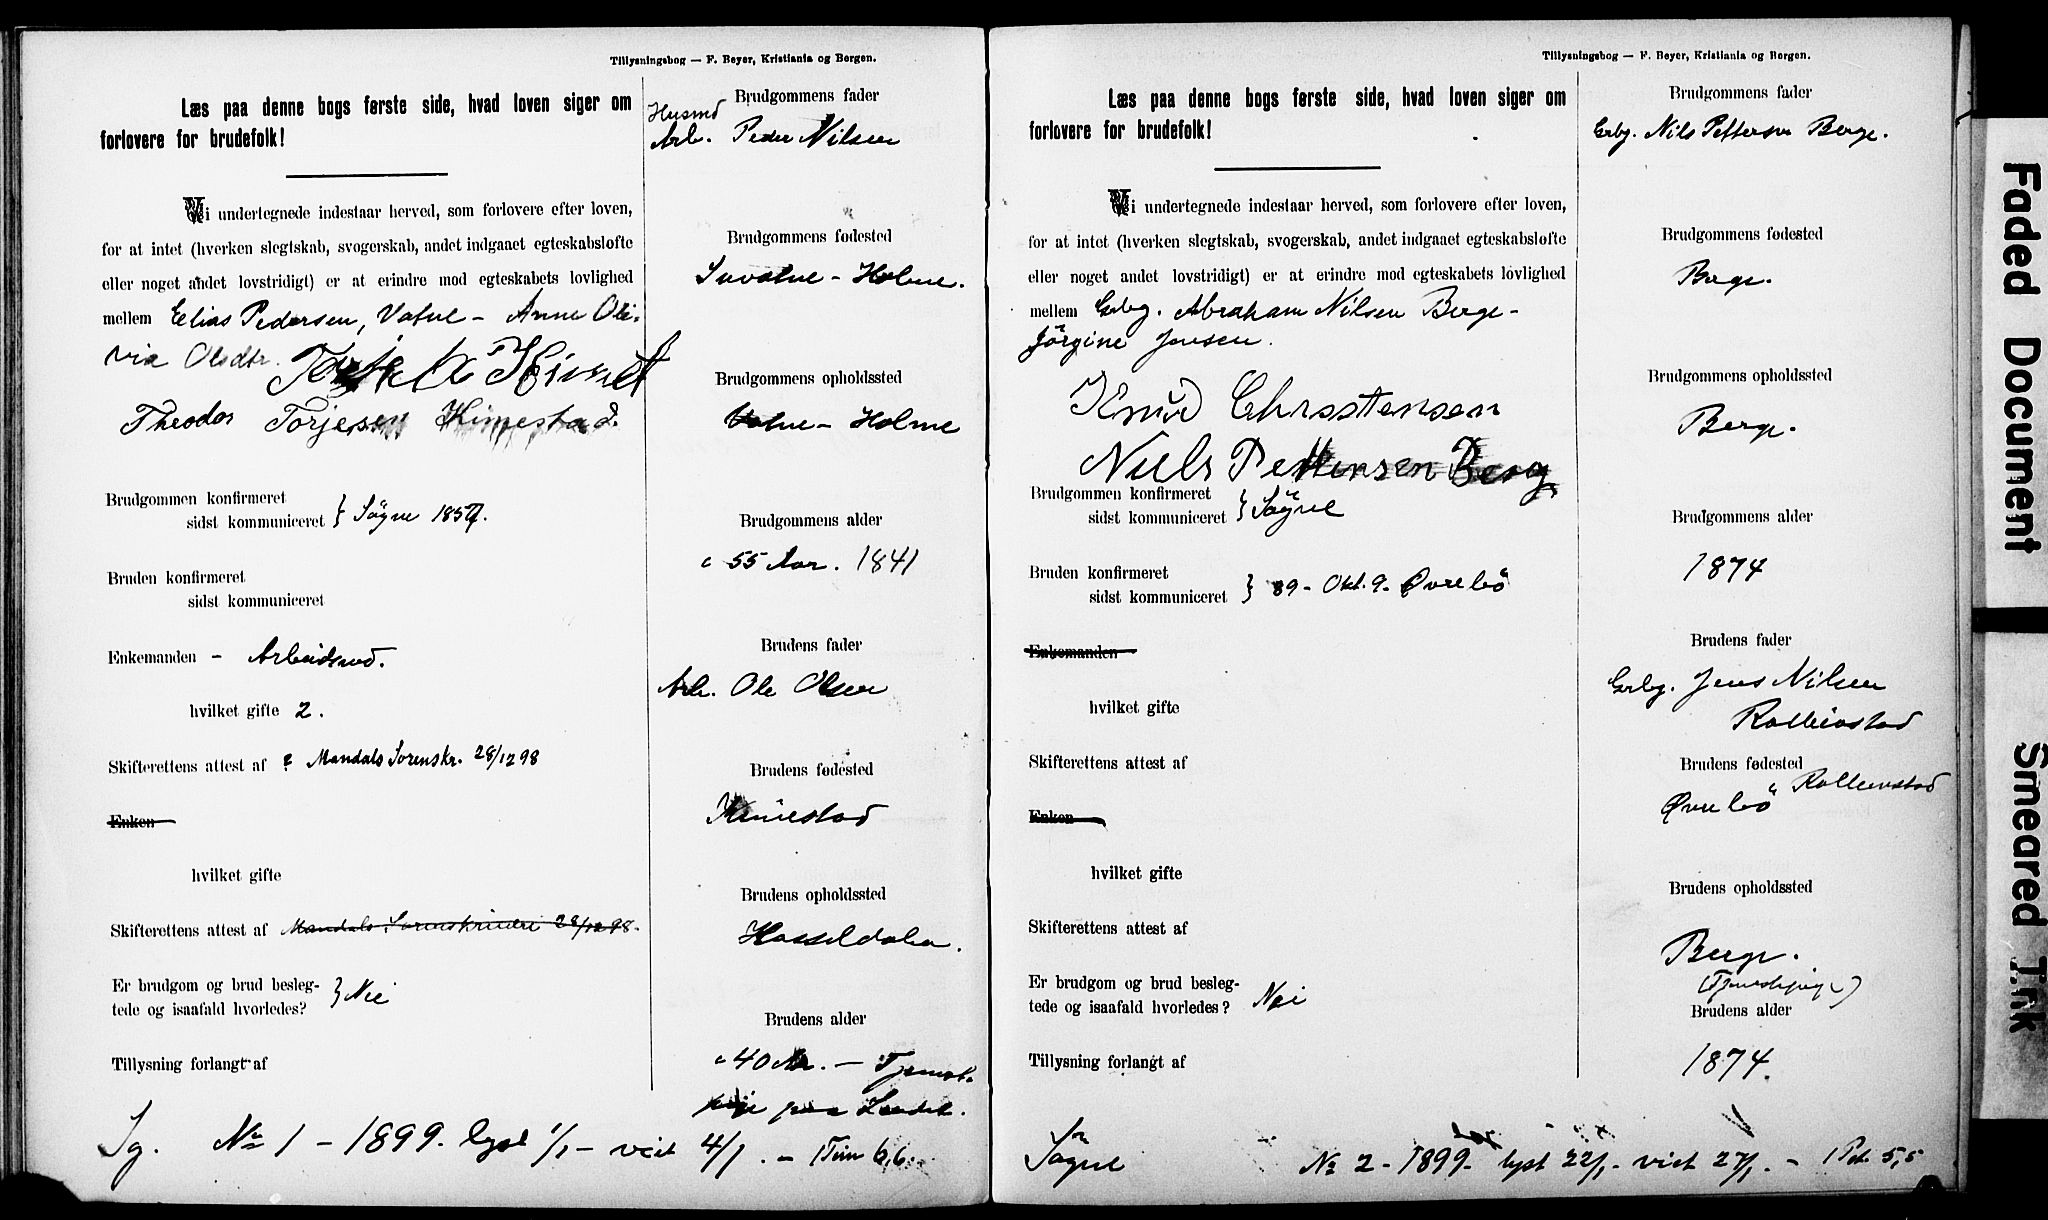 Tillysningsbog — F. Beyer, Kristiania og Bergen.
Læs paa denne bogs første side, hvad loven siger om
forlovere for brudefolk!
Vi undertegnede indestaar herved, som forlovere efter loven,
for at intet (hverken slegtskab, svogerskab, andet indgaaet egteskabsløfte
eller noget andet lovstridigt) er at erindre mod egteskabets lovlighed
mellem Elias Pedersen, Vatne - Anne Oli-
via Olsdtr.
Theodor Torjesen Kimestad.
Brudgommen konfirmeret
sidst kommuniceret } Søgne 1857.
Bruden konfirmeret
sidst kommuniceret
Enkemanden - Arbeidsmd.
hvilket gifte 2.
Skifterettens attest af ? Mandals Sorenskr. 28/12 98
Enken
hvilket gifte
Skifterettens attest af Mandals Sorenskriveri 28/12 98.
Er brudgom og brud besleg-
tede og isaafald hvorledes? } Nei
Tillysning forlangt af
Brudgommens fader
Husmd
Arb. Peder Nilsen
Brudgommens fødested
Holme.
Brudgommens opholdssted
Vatne - Holme
Brudgommens alder
c 55 Aar. 1841
Brudens fader
Arb. Ole Olsen
Brudens fødested
Kimestad
Brudens opholdssted
Hasseldalen.
Brudens alder
c 40 Aar. - Tjenest-
pige paa Landet.
Sg. No 1 - 1899. lyst 1/1 - viet 4/1. - 1 Tim 6,6.
Tillysningsbog — F. Beyer, Kristiania og Bergen.
Læs paa denne bogs første side, hvad loven siger om
forlovere for brudefolk!
Vi undertegnede indestaar herved, som forlovere efter loven,
for at intet (hverken slegtskab, svogerskab, andet indgaaet egteskabsløfte
eller noget andet lovstridigt) er at erindre mod egteskabets lovlighed
mellem Grbg. Abraham Nilsen Berge -
Jørgine Jensen.
Knud Chrsstensen
Niels Pettersen Berg
Brudgommen konfirmeret
sidst kommuniceret } Søgne
Bruden konfirmeret
sidst kommuniceret } 89 - Okt. 9. Øvrebø
Enkemanden
hvilket gifte
Skifterettens attest af
Enken
hvilket gifte
Skifterettens attest af
Er brudgom og brud besleg-
tede og isaafald hvorledes? Nei
Tillysning forlangt af
Brudgommens fader
Grbg. Nils Pettersen Berge.
Brudgommens fødested
Berge.
Brudgommens opholdssted
Berge.
Brudgommens alder
1874
Brudens fader
Grbg. Jens Nilsen
Brudens fødested
Øvrebø
Brudens opholdssted
Berge.
(Tjenestepige)
Brudens alder
1874.
Søgne No 2 - 1899 - lyst 22/1 - viet 27/1. - 1 Pet. 5,5
Faded Document
Smeared Ink